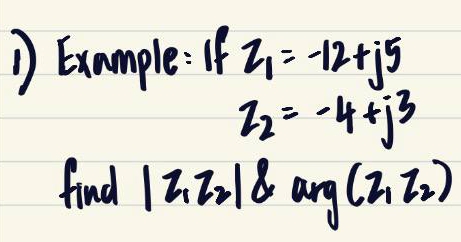 1) Example: If Z₁ = -12+j5
Z₂ = -4+j3
find |Z₁Z₂| & arg(Z₁Z₂)